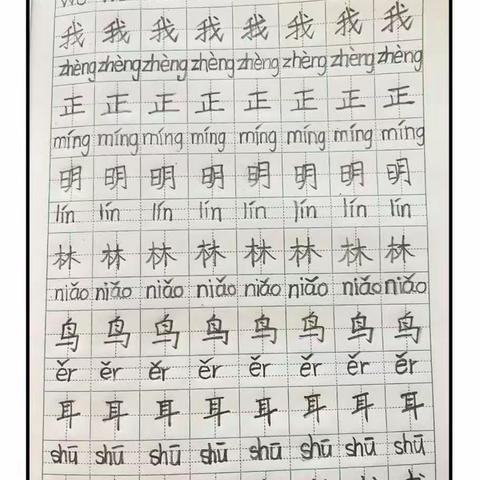 我 我 我 我 我 我 我 我
zhèng zhèng zhèng zhèng zhèng zhèng zhèng zhèng
正 正 正 正 正 正 正 正
míng míng míng míng míng míng míng míng
明 明 明 明 明 明 明 明
lín lín lín lín lín lín lín lín
林 林 林 林 林 林 林 林
niǎo niǎo niǎo niǎo niǎo niǎo niǎo niǎo
鸟 鸟 鸟 鸟 鸟 鸟 鸟 鸟
ěr ěr ěr ěr ěr ěr ěr ěr
耳 耳 耳 耳 耳 耳 耳 耳
shū shū shū shū shū shū shū shū